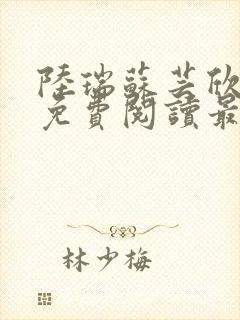 陸瑞蘇芸欣
免費閱讀最
林少梅